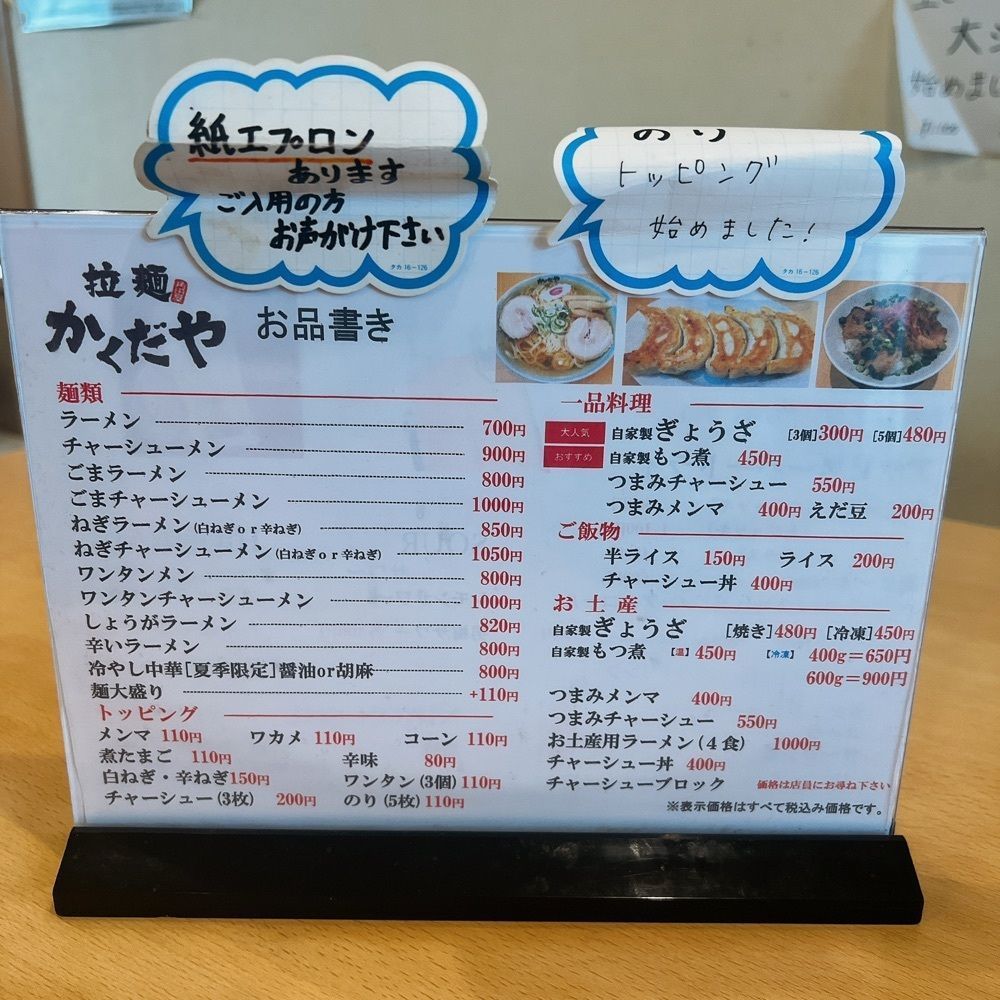 紙エプロン
あります
ご入用の方
お声がけ下さい
タカ 16-126
のり
トッピング
始めました!
タカ 16-126
大
始めまし
拉麺
かくだや
お品書き
麺類
ラーメン 700円
チャーシューメン 900円
ごまラーメン 800円
ごまチャーシューメン 1000円
ねぎラーメン(白ねぎor辛ねぎ) 850円
ねぎチャーシューメン(白ねぎor辛ねぎ) 1050円
ワンタンメン 800円
ワンタンチャーシューメン 1000円
しょうがラーメン 820円
辛いラーメン 800円
冷やし中華[夏季限定]醤油or胡麻 800円
麺大盛り +110円
トッピング
メンマ 110円 ワカメ 110円 コーン 110円
煮たまご 110円 辛味 80円
白ねぎ・辛ねぎ150円 ワンタン(3個)110円
チャーシュー(3枚) 200円 のり(5枚)110円
一品料理
大人気 自家製ぎょうざ [3個]300円 [5個]480円
おすすめ 自家製もつ煮 450円
つまみチャーシュー 550円
つまみメンマ 400円 えだ豆 200円
ご飯物
半ライス 150円 ライス 200円
チャーシュー丼 400円
お土産
自家製ぎょうざ [焼き]480円 [冷凍]450円
自家製もつ煮 [温]450円 [冷凍] 400g=650円
600g=900円
つまみメンマ 400円
つまみチャーシュー 550円
お土産用ラーメン(4食) 1000円
チャーシュー丼 400円
チャーシューブロック 価格は店員にお尋ね下さい
※表示価格はすべて税込み価格です。